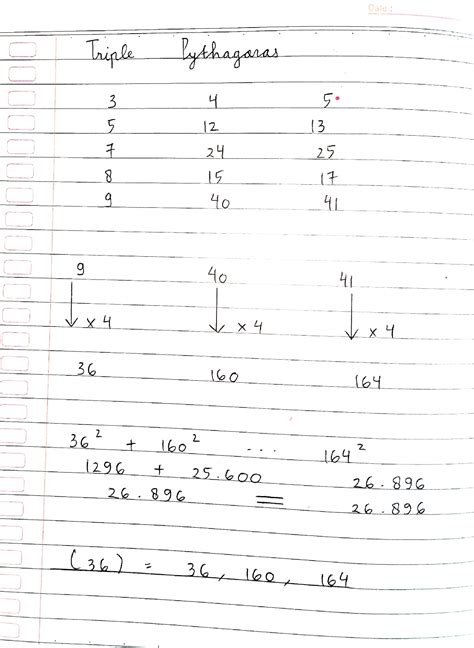 Date:
Triple Pythagoras
3 4 5
5 12 13
7 24 25
8 15 17
9 40 41
9 40 41
↓ x 4 ↓ x 4 ↓ x 4
36 160 164
36² + 160² ... 164²
1296 + 25.600 26.896
26.896 = 26.896
(36) = 36, 160, 164